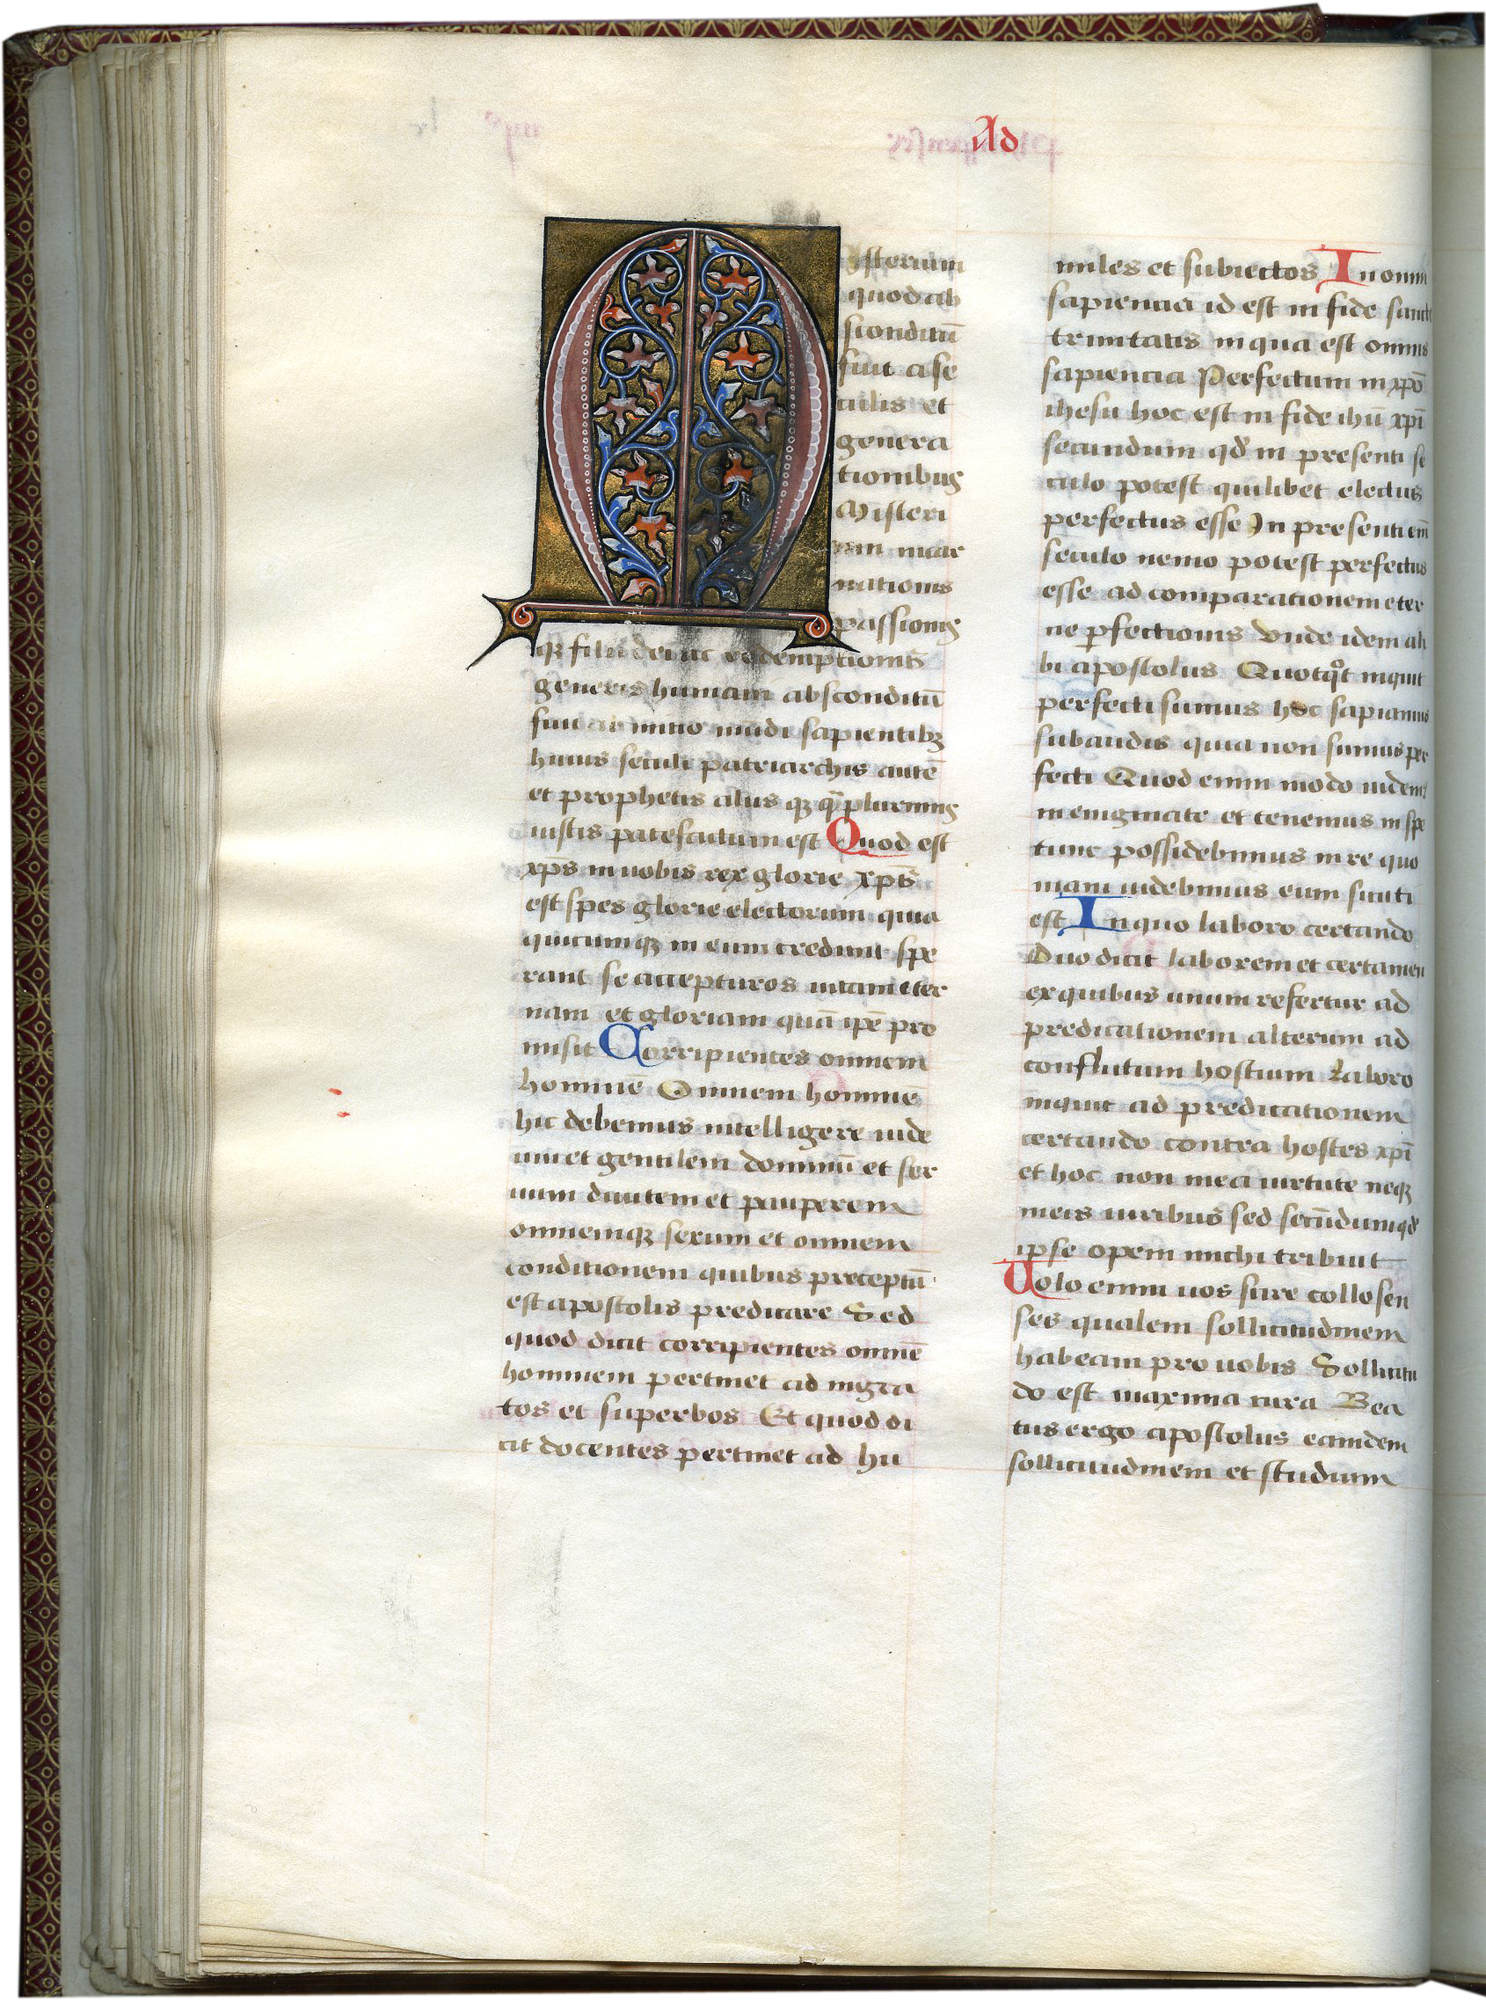 Ad
Misterium
quod ab
sconditū
fuit a se
culis et
genera
tionibus
Misteri
um incar
nationis
passionis
qȝ filii dei ac redemptionis
generis humani absconditū
fuit ab initio mūdi sapientibȝ
huius seculi patriarchis autē
et prophetis aliis qȝ q̄plurimis
iustis patefactum est Quod est
xp̄s in uobis rex glorie xp̄s
est spes glorie electorum quia
quicumqȝ in eum credunt spe
rant se accepturos uitam eter
nam et gloriam quā ipē pro
misit Corripientes omnem
hominē Omnem hominē
hic debemus intelligere iude
um et gentilem dominū et ser
uum diuitem et pauperem
omnemqȝ sexum et omnem
conditionem quibus preceptū
est apostolis predicare Sed
quod dicit corripientes omnē
hominem pertinet ad ingra
tos et superbos Et quod di
cit docentes pertinet ad hu
miles et subiectos In omni
sapiencia id est in fide sancte
trinitatis in qua est omnis
sapiencia Perfectum in xp̄o
ihesu hoc est in fide ihū xp̄i
secundum qd̄ in presenti se
culo potest quilibet electus
perfectus esse In presenti em̄
seculo nemo potest perfectus
esse ad comparationem eter
ne ꝑfectionis Vnde idem ali
bi apostolus Quotqͦt inquit
perfecti sumus hoc sapiamus
subaudis quia non sumus per
fecti Quod enim modo uidemꝰ
in enigmate et tenemus in spe
tunc possidebimus in re quo
niam uidebimus eum sicuti
est In quo laboro certando
Duo dicit laborem et certamen
ex quibus unum refertur ad
predicationem alterum ad
conflictum hostium Laboro
inquit ad predicationem
certando contra hostes xp̄i
et hoc non mea uirtute neqȝ
meis uiribus sed secūdum qd̄
ipse opem michi tribuit
Uolo enim uos scire collosen
ses qualem sollicitudinem
habeam pro uobis Sollicitu
do est maxima cura Bea
tus ergo apostolus eamdem
sollicitudinem et studium